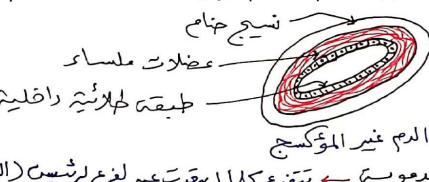 نسيج ضام
عضلات ملساء
طبقة طلائية داخلية
الدم غير المؤكسج
كلما بعدت عن